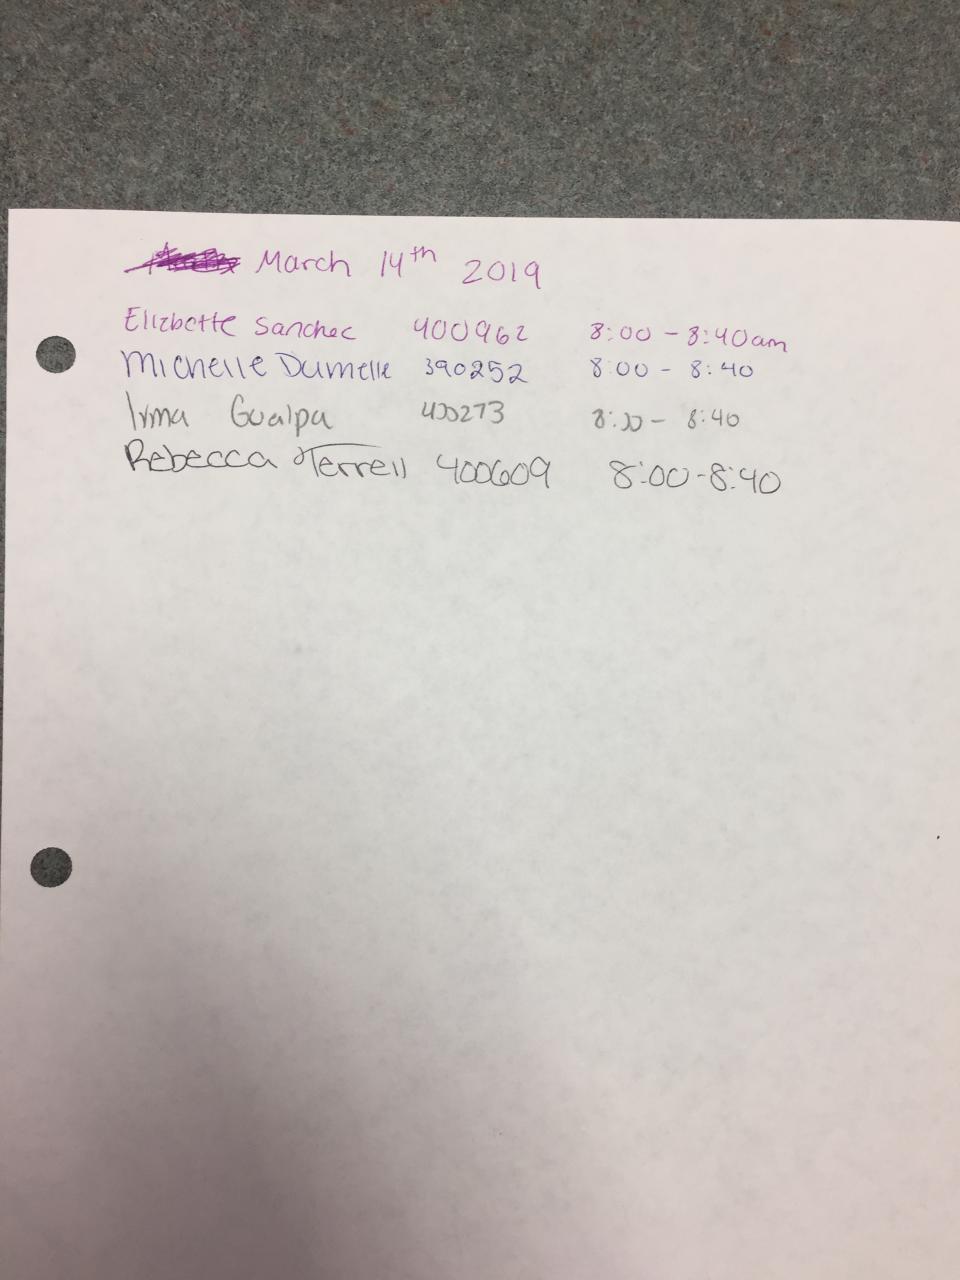 March 14th 2019
Elizbette Sanchec 400962 8:00 - 8:40am
Michelle Dumelle 390252 8:00 - 8:40
Irma Gualpa 400273 8:00 - 8:40
Rebecca Terrell 400609 8:00-8:40